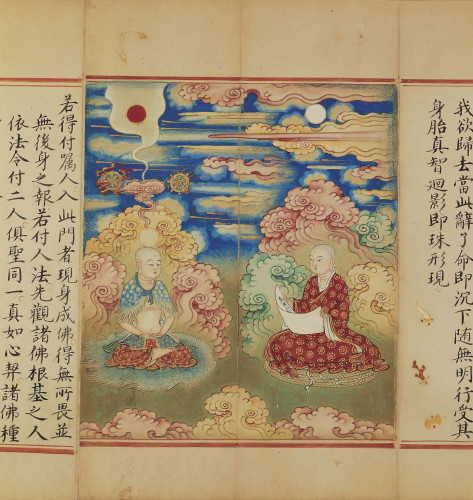 我欲歸去當此解了命即沉下隨無明行受其
身胎真智迴影即珠形現
若得付囑人入此門者現身成佛得無所畏並
無後身之報若付人法先觀諸佛根基之人
依法令付二人俱聖同一真如心契諸佛種